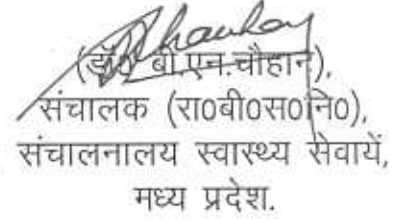 (डॉ0 बी.एन.चौहान),
संचालक (रा0बी0स0नि0),
संचालनालय स्वास्थ्य सेवायें,
मध्य प्रदेश.